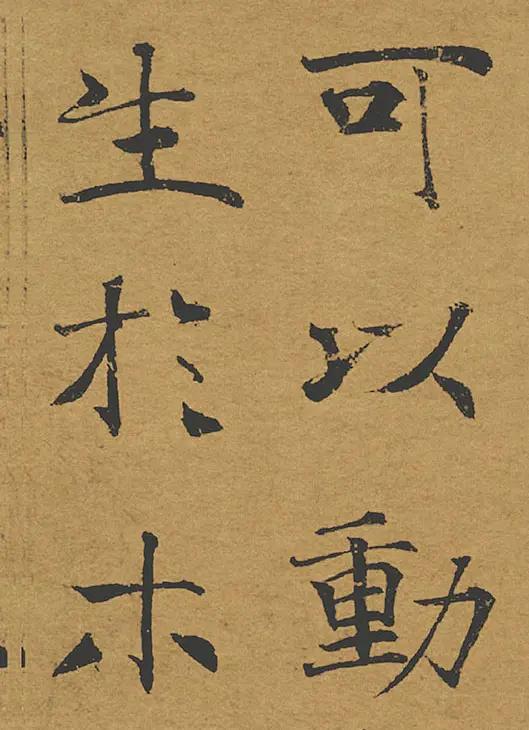 可以動
生於木